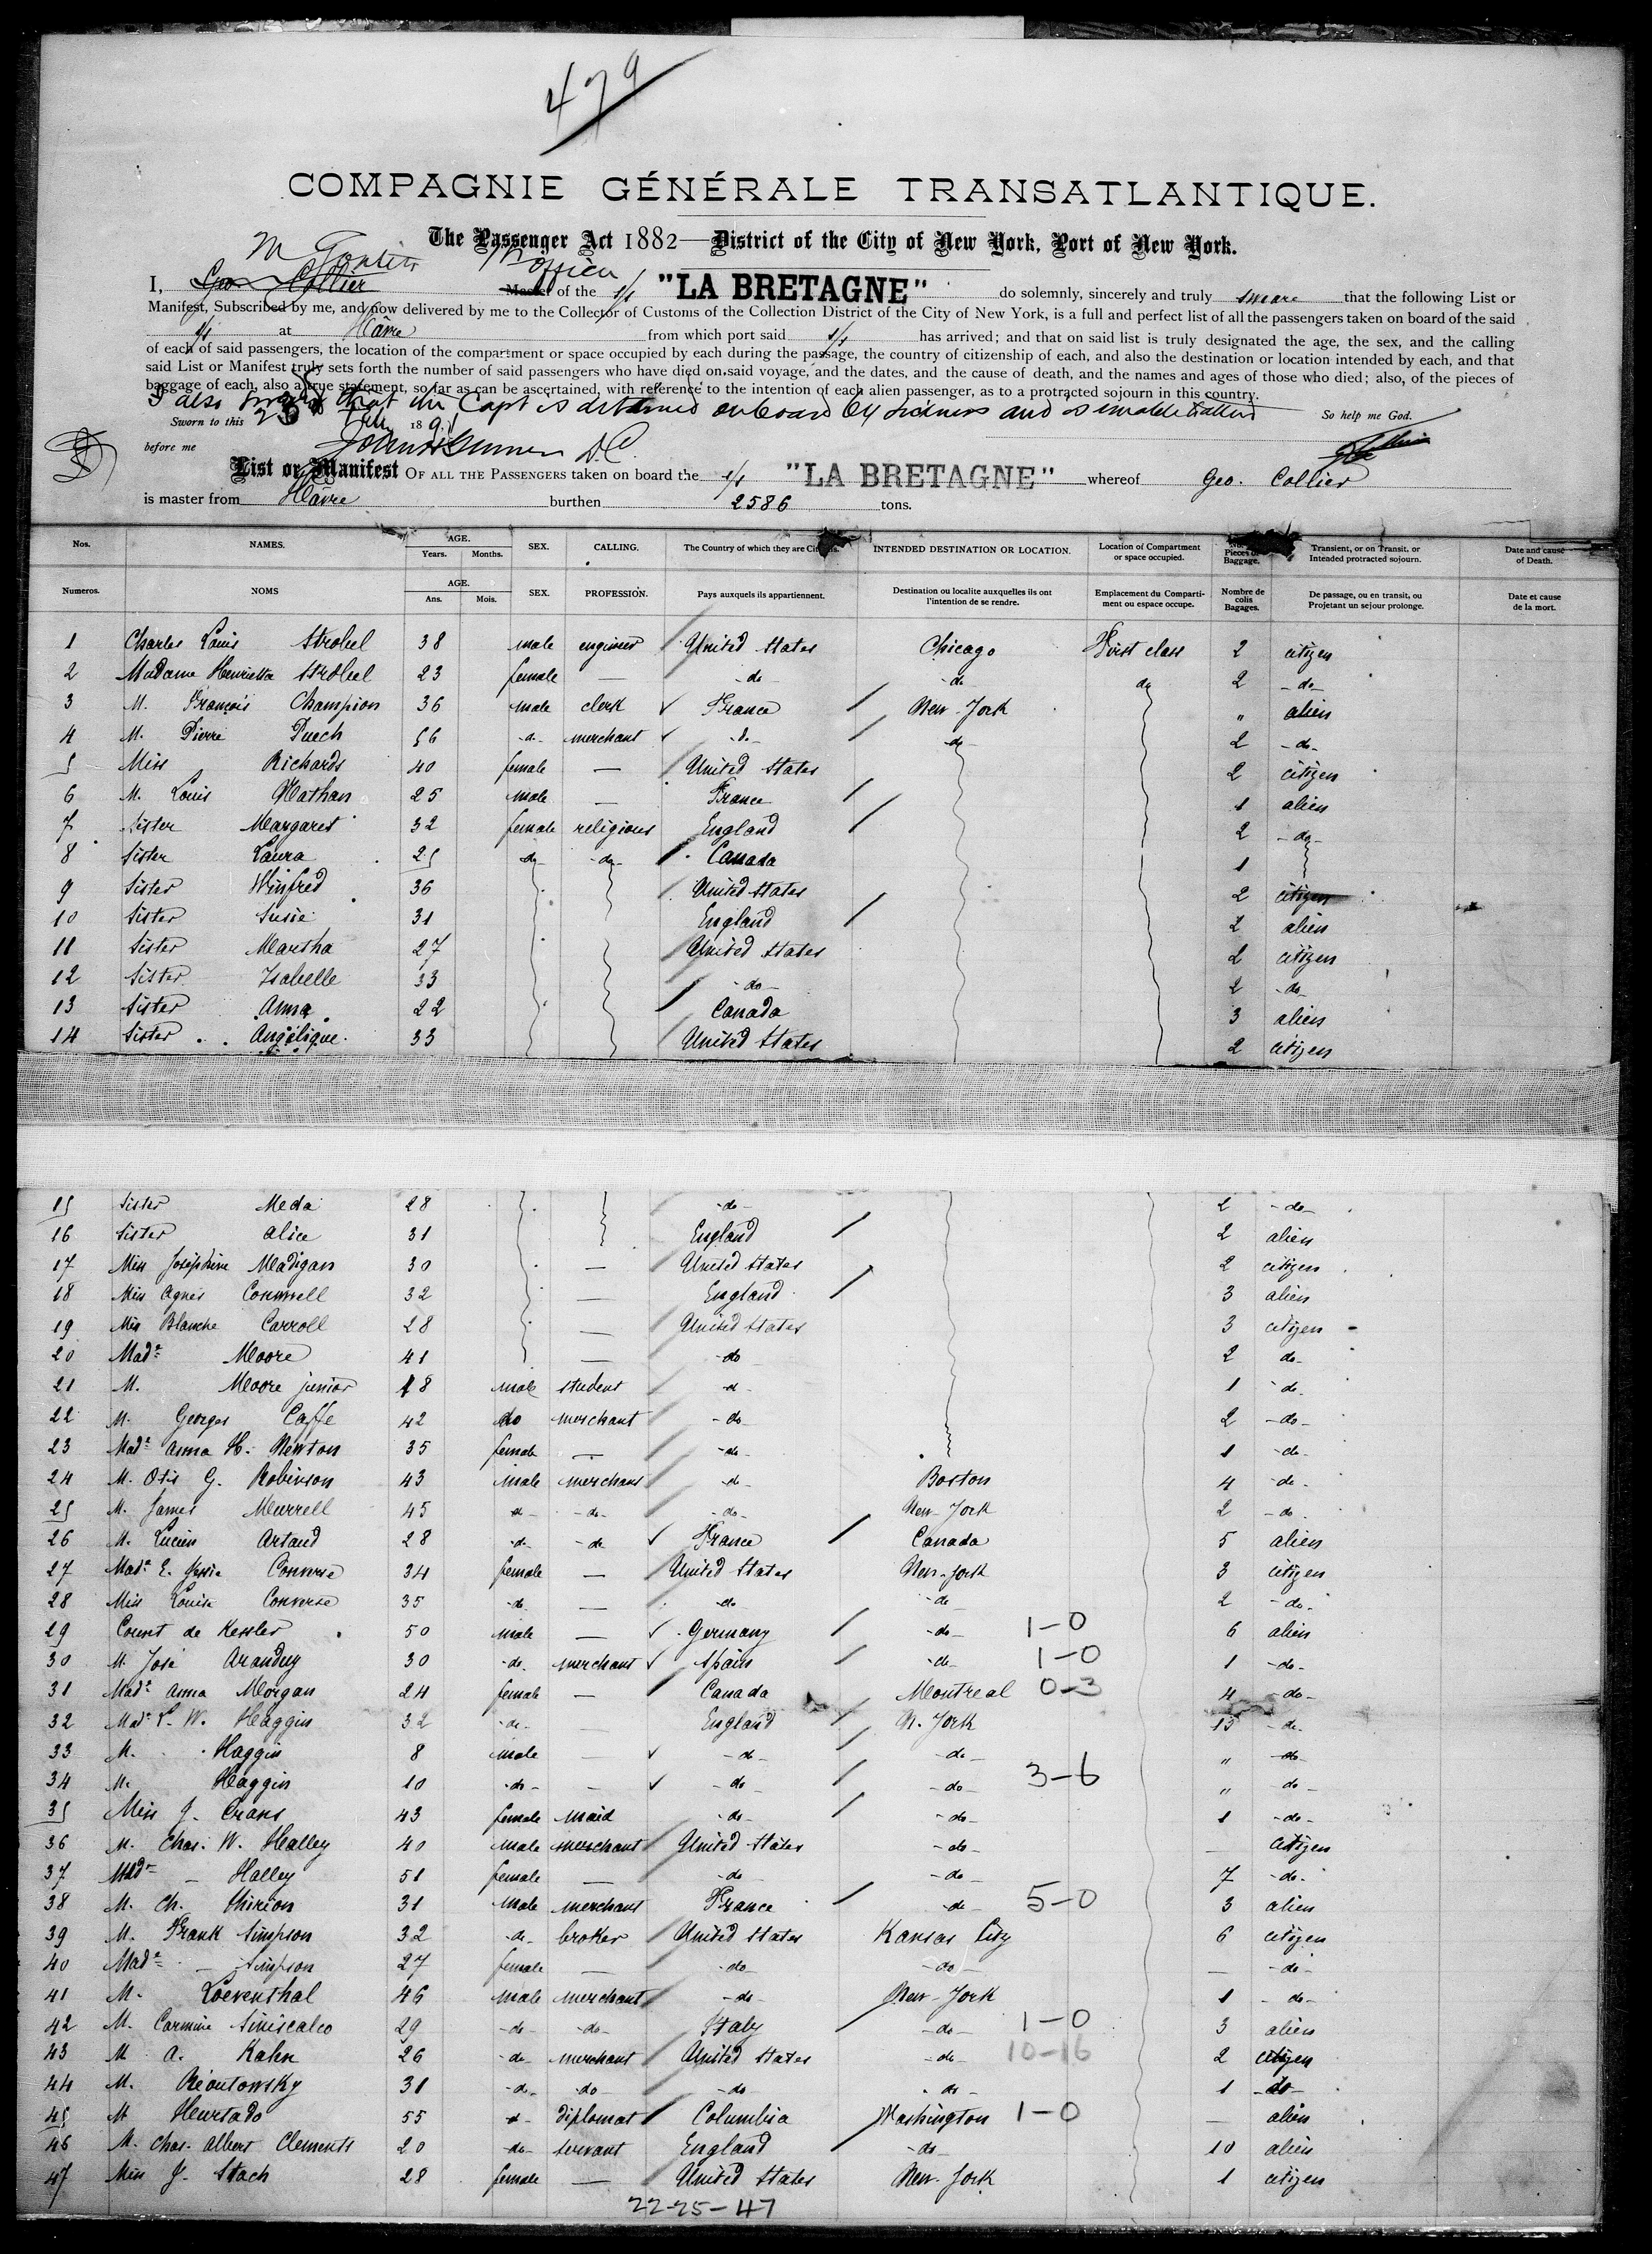 479
COMPAGNIE GÉNÉRALE TRANSATLANTIQUE.
The Passenger Act 1882—District of the City of New York, Port of New York.
M officer
I, Geo Collier Master of the s/s "LA BRETAGNE" do solemnly, sincerely and truly swear that the following List or
Manifest, Subscribed by me, and now delivered by me to the Collector of Customs of the Collection District of the City of New York, is a full and perfect list of all the passengers taken on board of the said
s/s at Hâvre from which port said s/s has arrived; and that on said list is truly designated the age, the sex, and the calling
of each of said passengers, the location of the compartment or space occupied by each during the passage, the country of citizenship of each, and also the destination or location intended by each, and that
said List or Manifest truly sets forth the number of said passengers who have died on said voyage, and the dates, and the cause of death, and the names and ages of those who died; also, of the pieces of
baggage of each, also a true statement, so far as can be ascertained, with reference to the intention of each alien passenger, as to a protracted sojourn in this country.
I also swear that the Capt is detained onboard by sickness and is unable to attend So help me God.
Sworn to this 189
before me D.C.
List or Manifest OF ALL THE PASSENGERS taken on board the s/s "LA BRETAGNE" whereof Geo. Collier
is master from Hâvre burthen 2586 tons.
Nos. NAMES. AGE. Years. Months. SEX. CALLING. The Country of which they are Citizens. INTENDED DESTINATION OR LOCATION. Location of Compartment or space occupied. Pieces of Baggage. Transient, or on Transit, or Intended protracted sojourn. Date and cause of Death.
Numeros. NOMS AGE. Ans. Mois. SEX. PROFESSION. Pays auxquels ils appartiennent. Destination ou localite auxquelles ils ont l'intention de se rendre. Emplacement du Compartiment ou espace occupe. Nombre de colis Bagages. De passage, ou en transit, ou Projetant un sejour prolonge. Date et cause de la mort.
1 Charles Louis Strobel 38 male engineer United States Chicago First class 2 citizen
2 Madame Henrietta Strobel 23 female — -do- -do- do 2 -do-
3 M. François Champion 36 male clerk France New-York " alien
4 M. Pierre Puech 56 -d- merchant -d- -do- 2 -do-
5 Miss Richards 40 female — United States 2 citizen
6 M. Louis Nathan 25 male — France 1 alien
7 Sister Margaret 32 female religious England 2 -do-
8 Sister Laura 25 -do- -do- Canada 1
9 Sister Winfred 36 United States 2 citizen
10 Sister Susie 31 England 2 alien
11 Sister Martha 27 United States 2 citizen
12 Sister Isabelle 33 -do- 2 -do-
13 Sister Anna 22 Canada 3 alien
14 Sister Angélique 33 United States 2 citizen
15 Sister Meda 28 -do- 2 -do-
16 Sister Alice 31 England 2 alien
17 Miss Joséphine Madigan 30 — United States 2 citizen
18 Miss Agnes 32 — England 3 alien
19 Miss Blanche Carroll 28 — United States 3 citizen
20 Made Moore 41 — -do 2 do-
21 M. Moore junior 18 male student -d- 1 -do-
22 M. Georges Caffe 42 do merchant -do- 2 -do-
23 Made Anna H. Newton 35 female — -do- 1 -do-
24 M. Otis G. Robinson 43 male merchant -d- Boston 4 -do-
25 M. James Murrell 45 -d- -do- -do- New-York 2 -do-
26 M. Lucien Artaud 28 -d- -do France Canada 5 alien
27 Made E. Jessie Converse 34 female — United States New-York 3 citizen
28 Miss Louise Converse 35 -do- — -do- -do 2 -do-
29 Count de Kessler 50 male — Germany -do- 1-0 6 alien
30 M. José Aranduy 30 -do- merchant Spain -do- 1-0 1 -do-
31 Made Anna Morgan 24 female — Canada Montreal 0-3 4 -do-
32 Made L. W. Haggin 32 -do- — England N. York 15 -do-
33 M. Haggin 8 male — -do- -do- " -do-
34 M. Haggin 10 -do- — -do -do- 3-6 " do-
35 Miss J. Crans 43 female maid -do- -do- 1 -do-
36 M. Chas. W. Halley 40 male merchant United States -do- citizen
37 Made — Halley 51 female — -do- -do- 7 -do-
38 M. Ch. Thirion 31 male merchant France -do 5-0 3 alien
39 M. Frank Simpson 32 -d- broker United States Kansas City 6 citizen
40 Made — Simpson 27 female — -do- -do- — -do-
41 M. Loeventhal 46 male merchant -do- New-York 1 -do-
42 M. Carmine Siniscalco 29 -do- -do- Italy -do- 1-0 3 alien
43 M. A. Kahn 26 -do merchant United States -do- 10-16 2 citizen
44 M. 31 -do- do -do -do- 1 -do-
45 M Hurtado 55 -d- diplomat Columbia Washington 1-0 — alien
46 M. Chas. Albert Clements 20 -do- servant England -do- 10 alien
47 Miss J. Stach 28 female — United States New-York 1 citizen
22-25-47